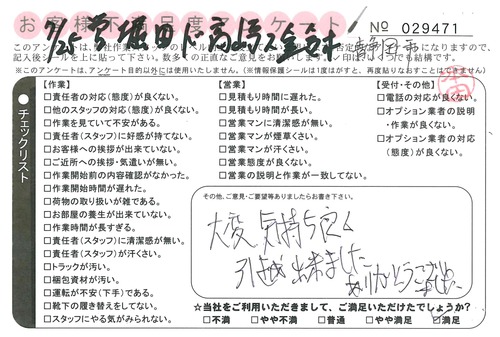 お客様不満足度アンケート
№ 029471
7/25
静岡市
記入後シールを上に貼って下さい。
(※このアンケートは、アンケート目的以外には使用いたしません。)(※情報保護シールは1度はがすと、再度貼りなおすことはできません。)
チェックリスト
【作業】
□責任者の対応(態度)が良くない。
□他のスタッフの対応(態度)が良くない。
□作業を見ていて不安がある。
□責任者(スタッフ)に好感が持てない。
□お客様への挨拶が出来ていない。
□ご近所への挨拶・気遣いが無い。
□作業開始前の内容確認がなかった。
□作業開始時間が遅れた。
□荷物の取り扱いが雑である。
□お部屋の養生が出来ていない。
□作業時間が長すぎる。
□責任者(スタッフ)に清潔感が無い。
□責任者(スタッフ)が汗くさい。
□トラックが汚い。
□梱包資材が汚い。
□運転が不安(下手)である。
□靴下の履き替えをしてない。
□スタッフにやる気がみられない。
【営業】
□見積もり時間に遅れた。
□見積もり時間が長い。
□営業マンに清潔感が無い。
□営業マンが煙草くさい。
□営業マンが汗くさい。
□営業態度が良くない。
□営業の説明と作業が一致してない。
【受付・その他】
□電話の対応が良くない。
□オプション業者の説明
・作業が良くない。
□オプション業者の対応
(態度)が良くない。
その他、ご意見・ご要望等ありましたらお書き下さい。
大変 気持ち良く
引越 出来ました
ありがとうございました。
☆当社をご利用いただきまして、ご満足いただけたでしょうか?
□不満 □やや不満 □普通 □やや満足 □満足